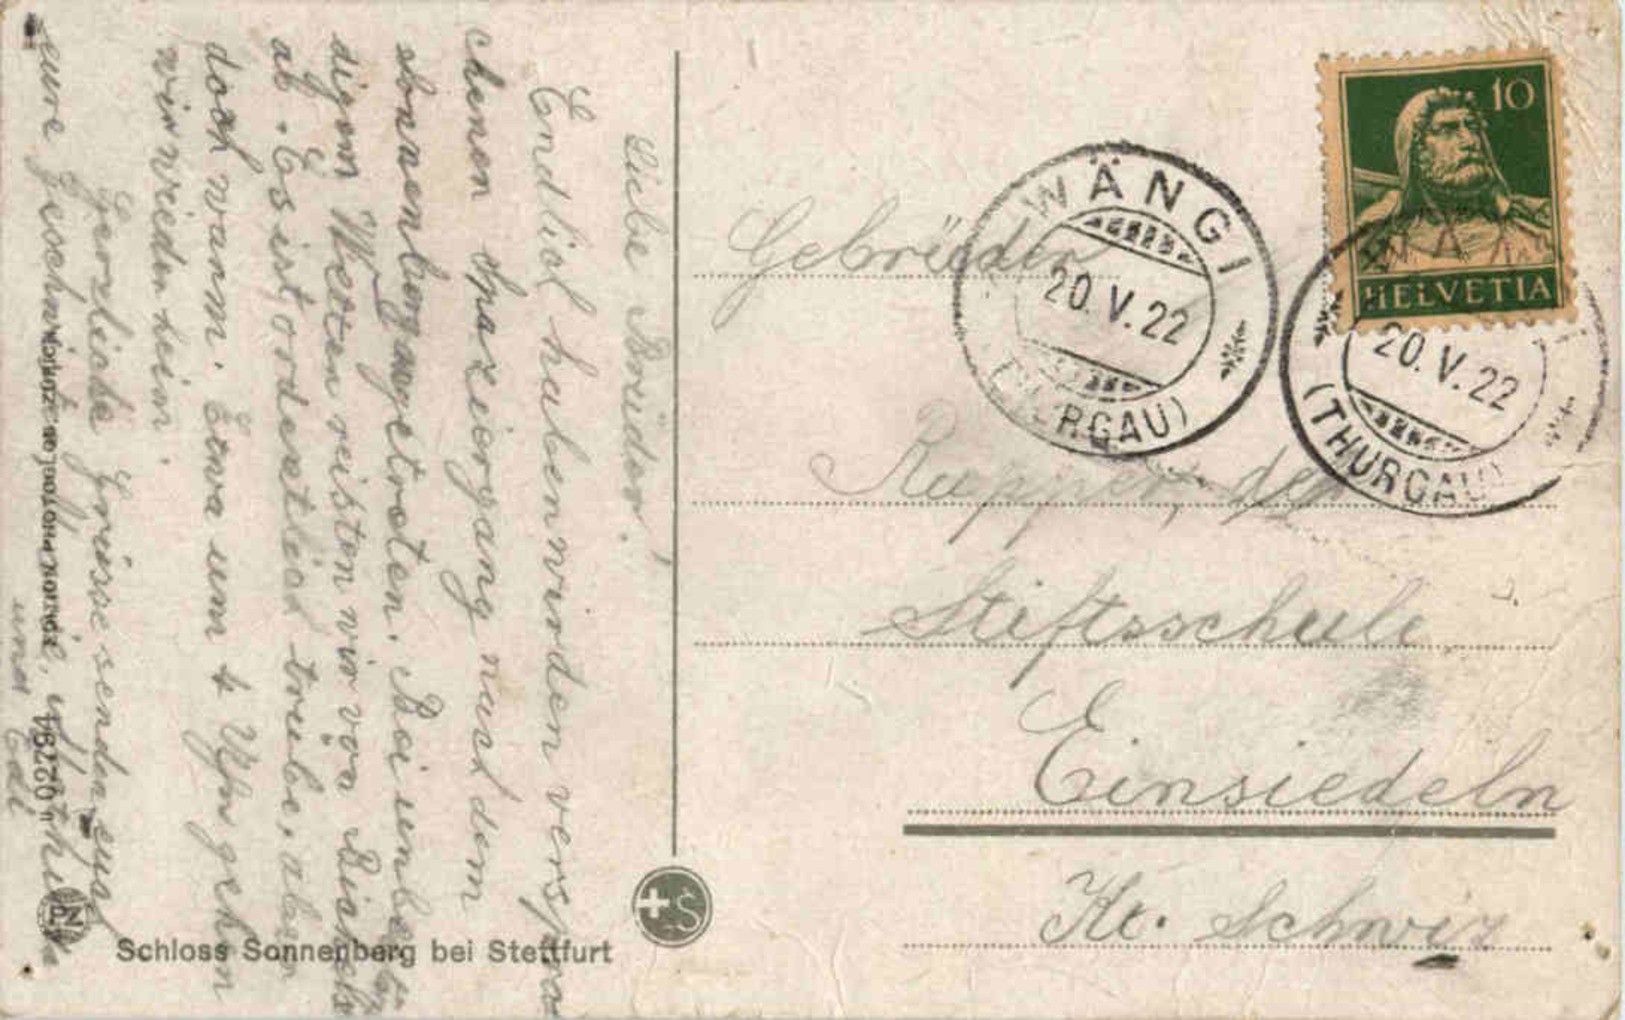 Liebe Brüder!
Endlich haben wir den verspro
chenen Spaziergang nach dem
Sonnenberg angetreten. Bei unbe
digem Wetter reisten wir von
ab. Es ist ordentlich trübe, aber
doch warm. Etwa um 4 Uhr gehen
wir wieder heim.
Herzliche Grüsse senden euch
eure Geschwister,
und Edi
Schloss Sonnenberg bei Stettfurt
No 2784
PZ
10
HELVETIA
WÄNGI
20.V.22
(THURGAU)
20.V.22
(THURGAU)
Gebrüder
Rupper, der
Stiftsschule
Einsiedeln
Kt. Schwiz